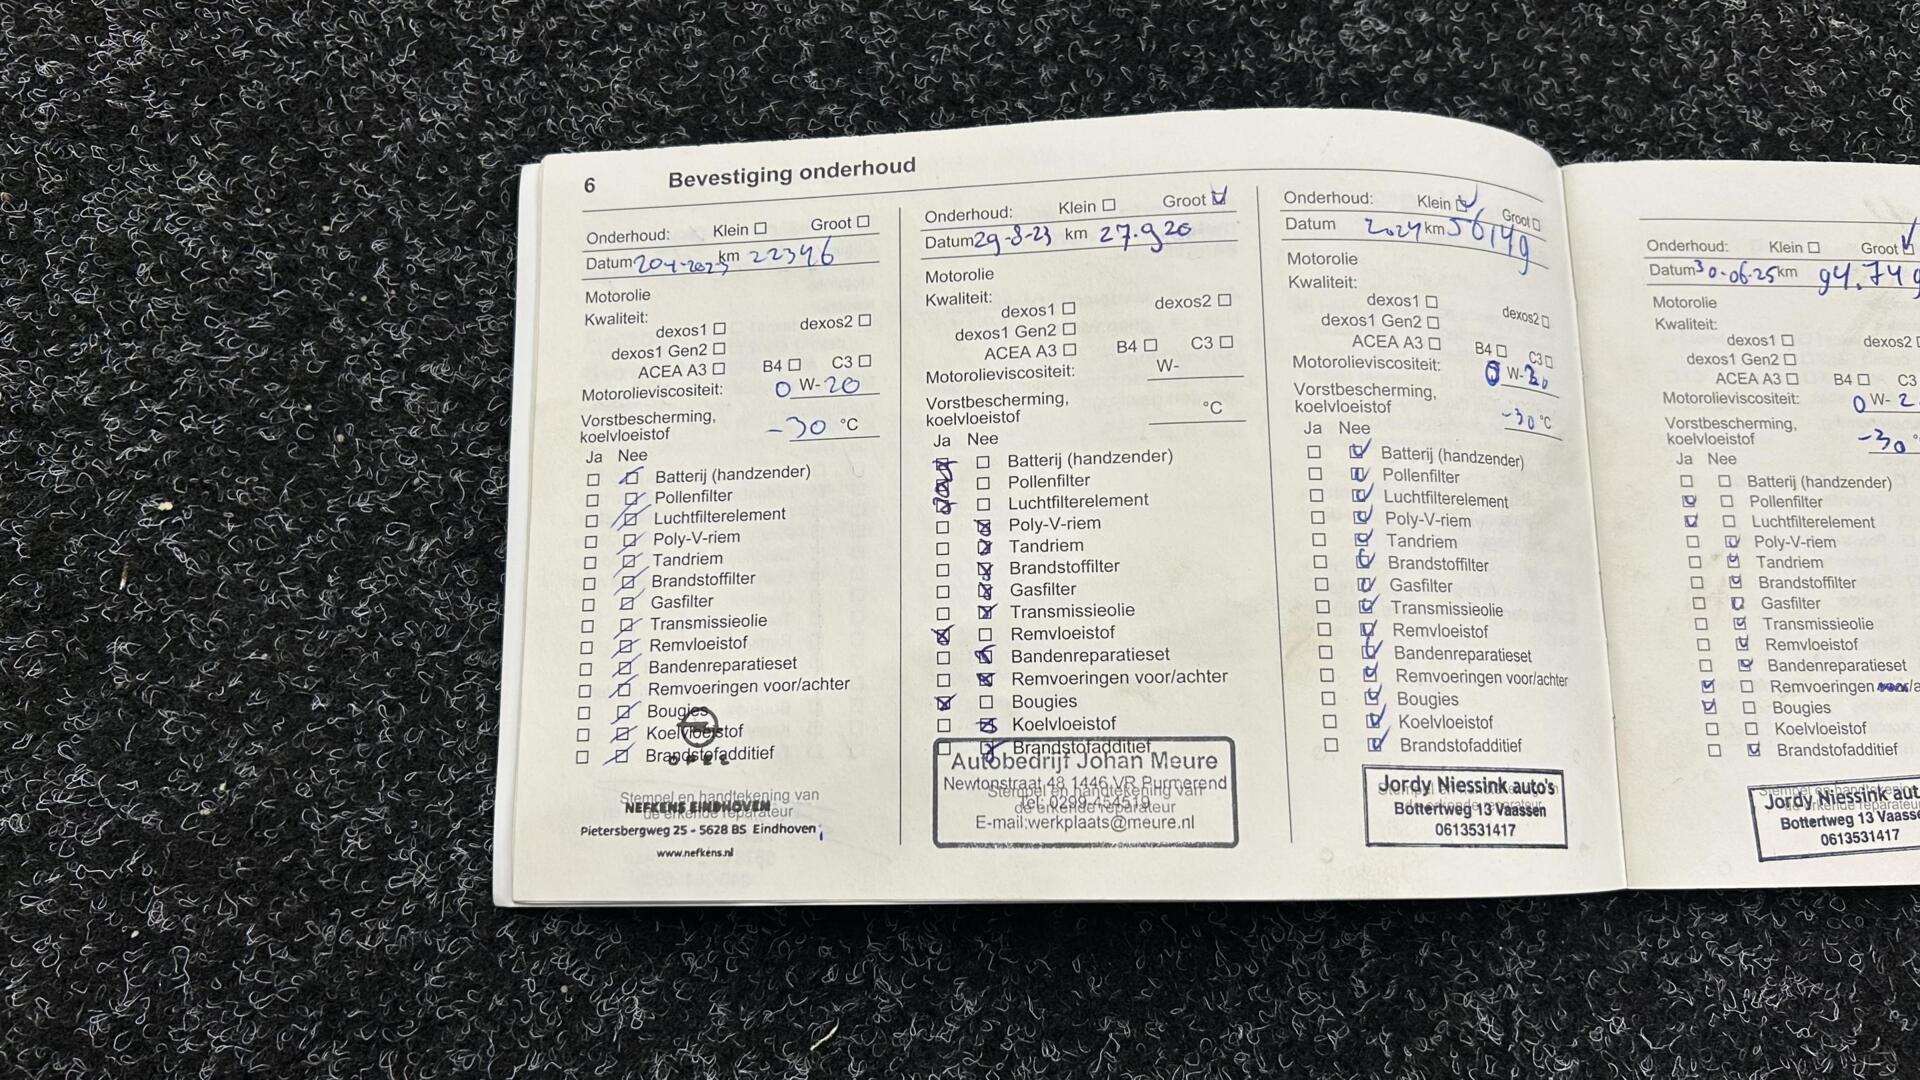 6 Bevestiging onderhoud
Onderhoud: Klein Groot
Datum 20-4-2023 km 22346
Motorolie
Kwaliteit:
dexos1 dexos2
dexos1 Gen2
ACEA A3 B4 C3
Motorolieviscositeit: 0 W-20
Vorstbescherming,
koelvloeistof -30 °C
Ja Nee
Batterij (handzender)
Pollenfilter
Luchtfilterelement
Poly-V-riem
Tandriem
Brandstoffilter
Gasfilter
Transmissieolie
Remvloeistof
Bandenreparatieset
Remvoeringen voor/achter
Bougies
Koelvloeistof
Brandstofadditief
OPEL
Stempel en handtekening van
de erkende reparateur
NEFKENS EINDHOVEN
Pietersbergweg 25 - 5628 BS Eindhoven
www.nefkens.nl
Onderhoud: Klein Groot
Datum 29-8-23 km 27.920
Motorolie
Kwaliteit:
dexos1 dexos2
dexos1 Gen2
ACEA A3 B4 C3
Motorolieviscositeit: W-
Vorstbescherming,
koelvloeistof °C
Ja Nee
Batterij (handzender)
Pollenfilter
Luchtfilterelement
Poly-V-riem
Tandriem
Brandstoffilter
Gasfilter
Transmissieolie
Remvloeistof
Bandenreparatieset
Remvoeringen voor/achter
Bougies
Koelvloeistof
Brandstofadditief
Autobedrijf Johan Meure
Newtonstraat 48 1446 VR Purmerend
Stempel en handtekening van
Tel. 0299-454519
de erkende reparateur
E-mail:werkplaats@meure.nl
Onderhoud: Klein Groot
Datum 2024 km 56149
Motorolie
Kwaliteit:
dexos1 dexos2
dexos1 Gen2
ACEA A3 B4 C3
Motorolieviscositeit: 0 W-20
Vorstbescherming,
koelvloeistof -30 °C
Ja Nee
Batterij (handzender)
Pollenfilter
Luchtfilterelement
Poly-V-riem
Tandriem
Brandstoffilter
Gasfilter
Transmissieolie
Remvloeistof
Bandenreparatieset
Remvoeringen voor/achter
Bougies
Koelvloeistof
Brandstofadditief
Jordy Niessink auto's
Bottertweg 13 Vaassen
0613531417
Onderhoud: Klein Groot
Datum 30-06-25 km 94.749
Motorolie
Kwaliteit:
dexos1 dexos2
dexos1 Gen2
ACEA A3 B4 C3
Motorolieviscositeit: 0 W-2
Vorstbescherming,
koelvloeistof -30 °
Ja Nee
Batterij (handzender)
Pollenfilter
Luchtfilterelement
Poly-V-riem
Tandriem
Brandstoffilter
Gasfilter
Transmissieolie
Remvloeistof
Bandenreparatieset
Remvoeringen voor/a
Bougies
Koelvloeistof
Brandstofadditief
Jordy Niessink aut
Bottertweg 13 Vaasse
0613531417